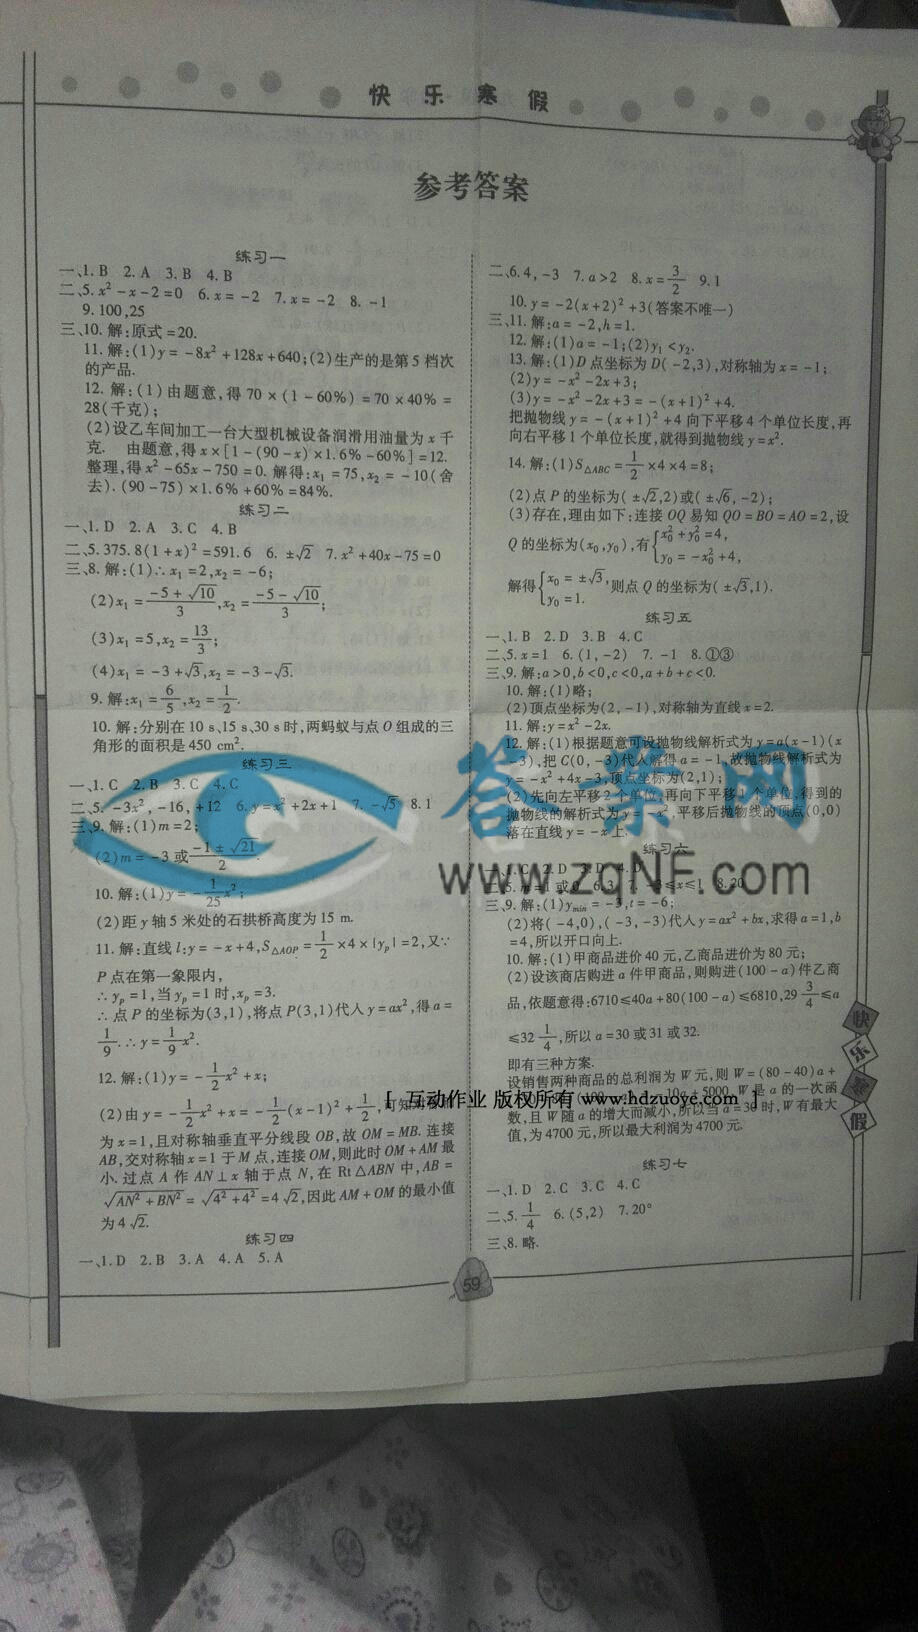 快乐寒假
参考答案
练习一
一、1. B 2. A 3. B 4. B
二、5. x²-x-2=0 6. x=-2 7. x=-2 8. -1
9. 100,25
三、10. 解:原式=20.
11. 解:(1)y=-8x²+128x+640;(2)生产的是第5档次
的产品.
12. 解:(1)由题意,得70×(1-60%)=70×40%=
28(千克);
(2)设乙车间加工一台大型机械设备润滑用油量为x千
克. 由题意,得x×[1-(90-x)×1.6%-60%]=12.
整理,得x²-65x-750=0. 解得:x₁=75,x₂=-10(舍
去). (90-75)×1.6%+60%=84%.
练习二
一、1. D 2. A 3. C 4. B
二、5. 375.8(1+x)²=591.6 6. ±√2 7. x²+40x-75=0
三、8. 解:(1)∴x₁=2,x₂=-6;
(2)x₁=(-5+√10)/3,x₂=(-5-√10)/3;
(3)x₁=5,x₂=13/3;
(4)x₁=-3+√3,x₂=-3-√3.
9. 解:x₁=6/5,x₂=1/2.
10. 解:分别在10 s、15 s、30 s时,两蚂蚁与点O组成的三
角形的面积是450 cm².
练习三
一、1. C 2. B 3. C 4. C
二、5. -3x²,-16,+12 6. y=x²+2x+1 7. -√5 8. 1
三、9. 解:(1)m=2;
(2)m=-3或(-1±√21)/2.
10. 解:(1)y=-1/25x²;
(2)距y轴5米处的石拱桥高度为15 m.
11. 解:直线l:y=-x+4,S△AOP=1/2×4×|yₚ|=2,又∵
P点在第一象限内,
∴yₚ=1,当yₚ=1时,xₚ=3.
∴点P的坐标为(3,1),将点P(3,1)代人y=ax²,得a=
1/9.∴y=1/9x².
12. 解:(1)y=-1/2x²+x;
(2)由y=-1/2x²+x=-1/2(x-1)²+1/2,可知对称轴
为x=1,且对称轴垂直平分线段OB,故OM=MB. 连接
AB,交对称轴x=1于M点,连接OM,则此时OM+AM最
小. 过点A作AN⊥x轴于点N,在Rt△ABN中,AB=
√(AN²+BN²)=√(4²+4²)=4√2,因此AM+OM的最小值
为4√2.
练习四
一、1. D 2. B 3. A 4. A 5. A
二、6. 4,-3 7. a>2 8. x=3/2 9. 1
10. y=-2(x+2)²+3(答案不唯一)
三、11. 解:a=-2,h=1.
12. 解:(1)a=-1;(2)y₁<y₂.
13. 解:(1)D点坐标为D(-2,3),对称轴为x=-1;
(2)y=-x²-2x+3;
(3)y=-x²-2x+3=-(x+1)²+4.
把抛物线y=-(x+1)²+4向下平移4个单位长度,再
向右平移1个单位长度,就得到抛物线y=x².
14. 解:(1)S△ABC=1/2×4×4=8;
(2)点P的坐标为(±√2,2)或(±√6,-2);
(3)存在,理由如下:连接OQ易知QO=BO=AO=2,设
Q的坐标为(x₀,y₀),有{x₀²+y₀²=4, y₀=-x₀²+4,
解得{x₀=±√3, y₀=1. 则点Q的坐标为(±√3,1).
练习五
一、1. B 2. D 3. B 4. C
二、5. x=1 6. (1,-2) 7. -1 8. ①③
三、9. 解:a>0,b<0,c<0,a+b+c<0.
10. 解:(1)略;
(2)顶点坐标为(2,-1),对称轴为直线x=2.
11. 解:y=x²-2x.
12. 解:(1)根据题意可设抛物线解析式为y=a(x-1)(x
-3),把C(0,-3)代人解得a=-1,故抛物线解析式为
y=-x²+4x-3,顶点坐标为(2,1);
(2)先向左平移2个单位,再向下平移1个单位,得到的
抛物线的解析式为y=-x²,平移后抛物线的顶点(0,0)
落在直线y=-x上.
练习六
一、1. C 2. D 3. D 4. D
二、5. m=1或0 6. 3 7. ≤x≤1 8. 20
三、9. 解:(1)y_min=-3,t=-6;
(2)将(-4,0),(-3,-3)代人y=ax²+bx,求得a=1,b
=4,所以开口向上.
10. 解:(1)甲商品进价40元,乙商品进价为80元;
(2)设该商店购进a件甲商品,则购进(100-a)件乙商
品,依题意得:6710≤40a+80(100-a)≤6810,29 3/4≤a
≤32 1/4,所以a=30或31或32.
即有三种方案.
设销售两种商品的总利润为W元,则W=(80-40)a+
5000,W是a的一次函
数,且W随a的增大而减小,所以当a=30时,W有最大
值,为4700元,所以最大利润为4700元.
练习七
一、1. D 2. C 3. C 4. C
二、5. 1/4 6. (5,2) 7. 20°
三、8. 略.
快乐寒假
59
答案网
www.zqNF.com
[ 互动作业 版权所有 www.hdzuoye.com ]